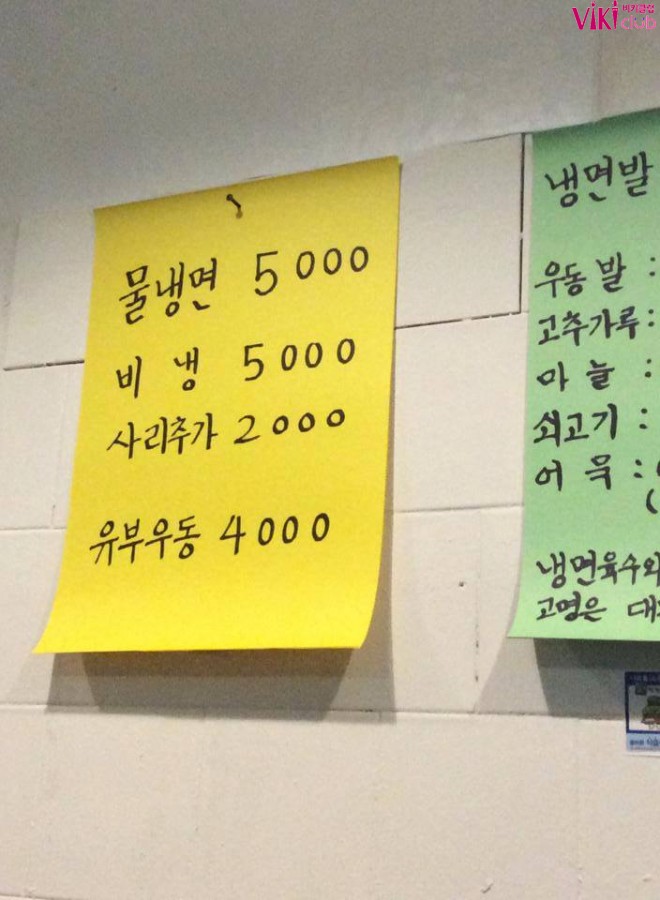 ViKi 비키클럽
club
물냉면 5000
비 냉 5000
사리추가 2000
유부우동 4000
냉면발
우동발 :
고추가루 :
마늘 :
쇠고기 :
어묵 : (
(
냉면육수와
고명은